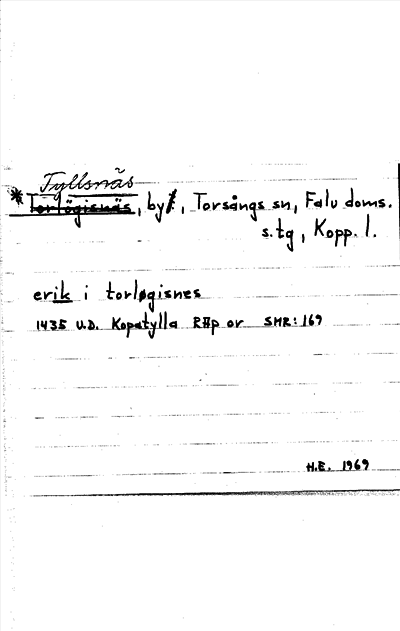 Tyllsnäs
* Torlögisnäs, by, Torsångs sn, Falu doms.
s.tg, Kopp. l.
erik i torløgisnes
1435 U.D. Kopatylla RAp or SMR:169
H.E. 1969